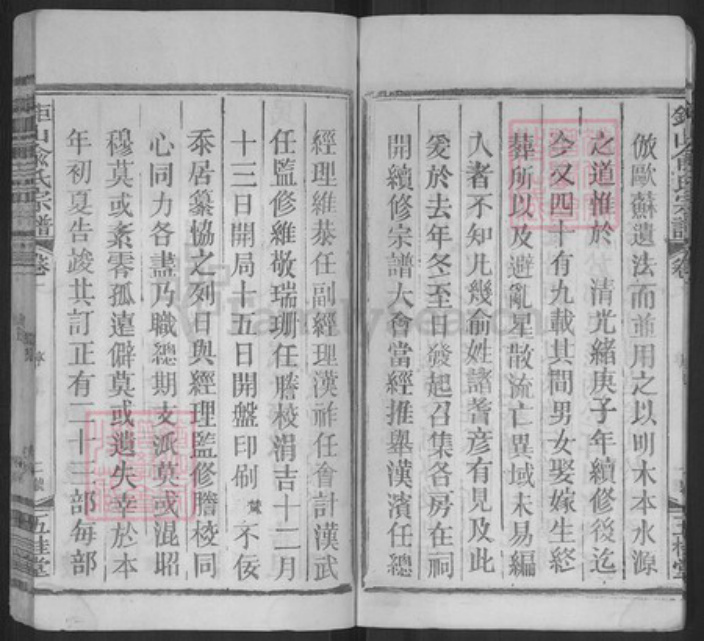 倣歐蘇遺法而並用之以明木本水源
之道惟於 清光緒庚子年續修後迄
今又四十有九載其間男女娶嫁生終
葬所以及避亂星散流亡異域未易編
入者不知凡幾俞姓諸耆彥有見及此
爰於去年冬至日發起召集各房在祠
開續修宗譜大會當經推舉漢濱任總
經理維恭任副經理漢祚任會計漢武
任監修維敬瑞珊任謄校涓吉十二月
十三日開局十五日開盤印刷 不佞
忝居纂協之列日與經理監修謄校同
心同力各盡乃職總期支派莫或混昭
穆莫或紊零孤遠僻莫或遺失幸於本
年初夏告竣共訂正有二十三部每部
山俞氏宗譜 卷
序
五桂堂
FamilySearch